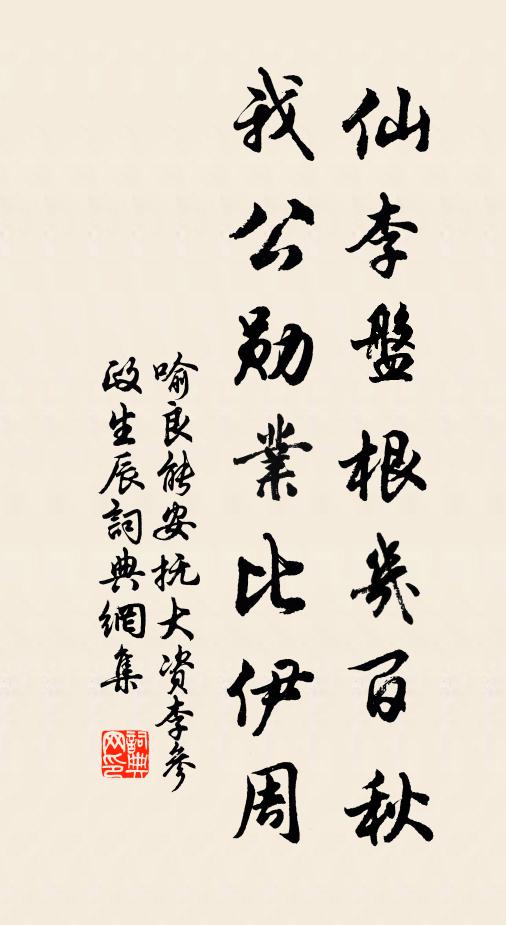 仙李盤根幾百秋
我公勛業比伊周
喻良能安抚大资李參
政生辰詞典網集
詞典网印